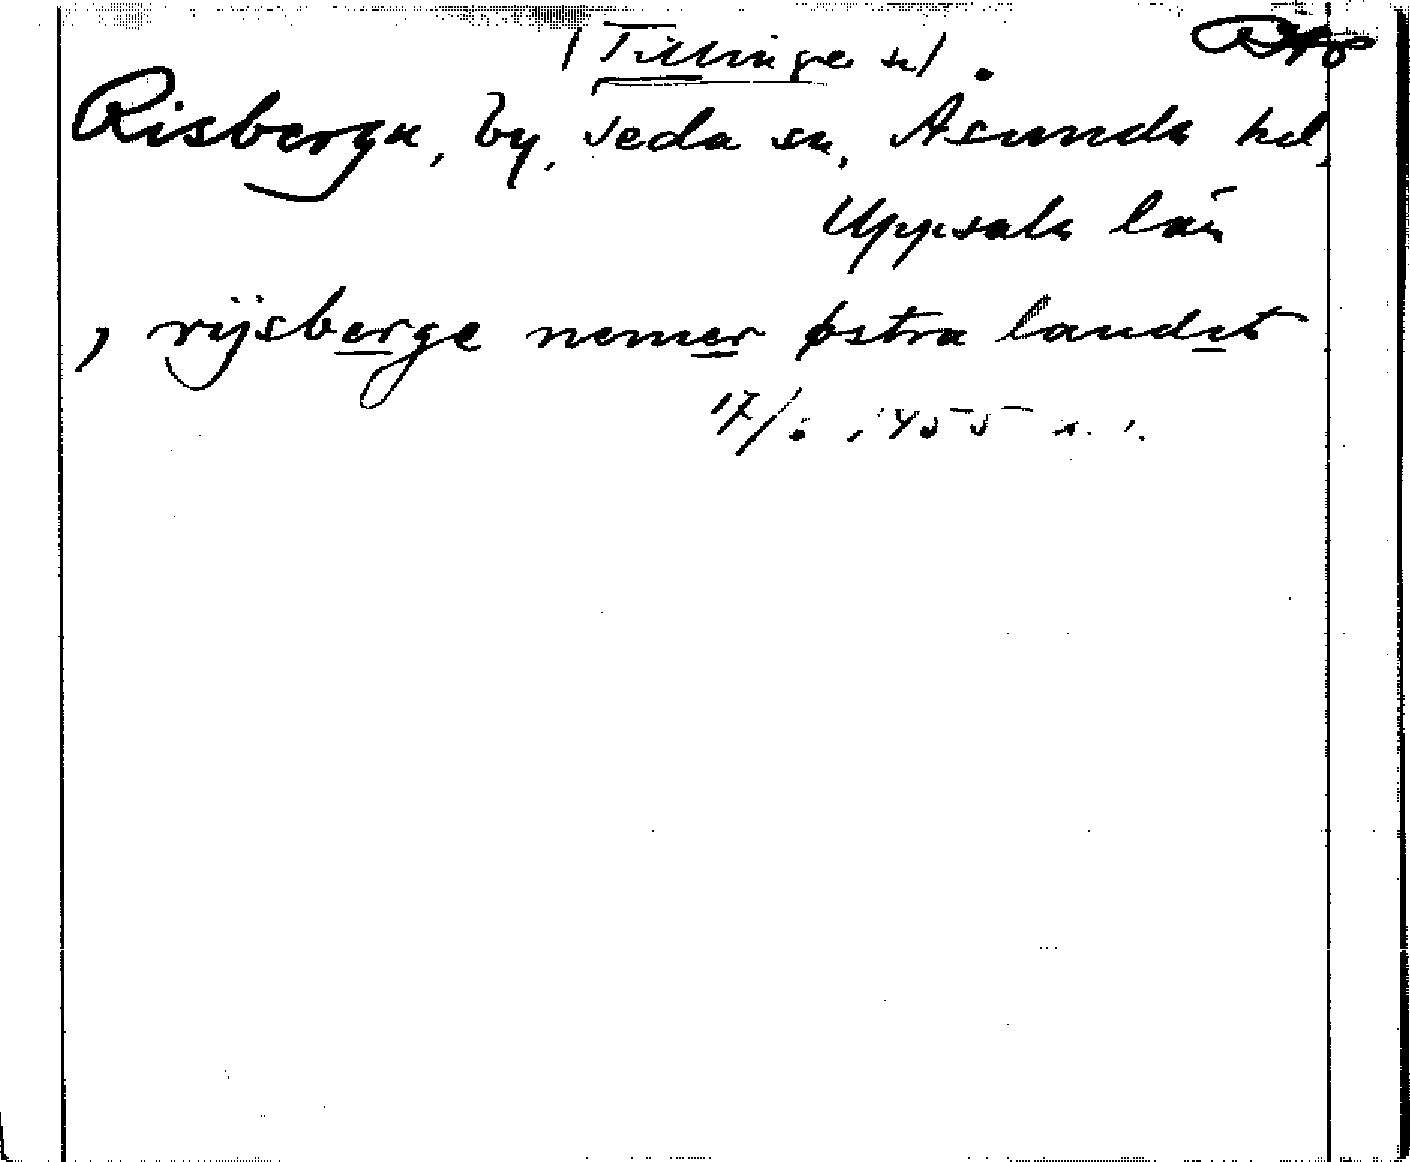 /Tillinge sn/.
Risberga, by, Veda sn, Åsunda hd,
Uppsala län
, rijsberge nemer østra landet
17/6 1455